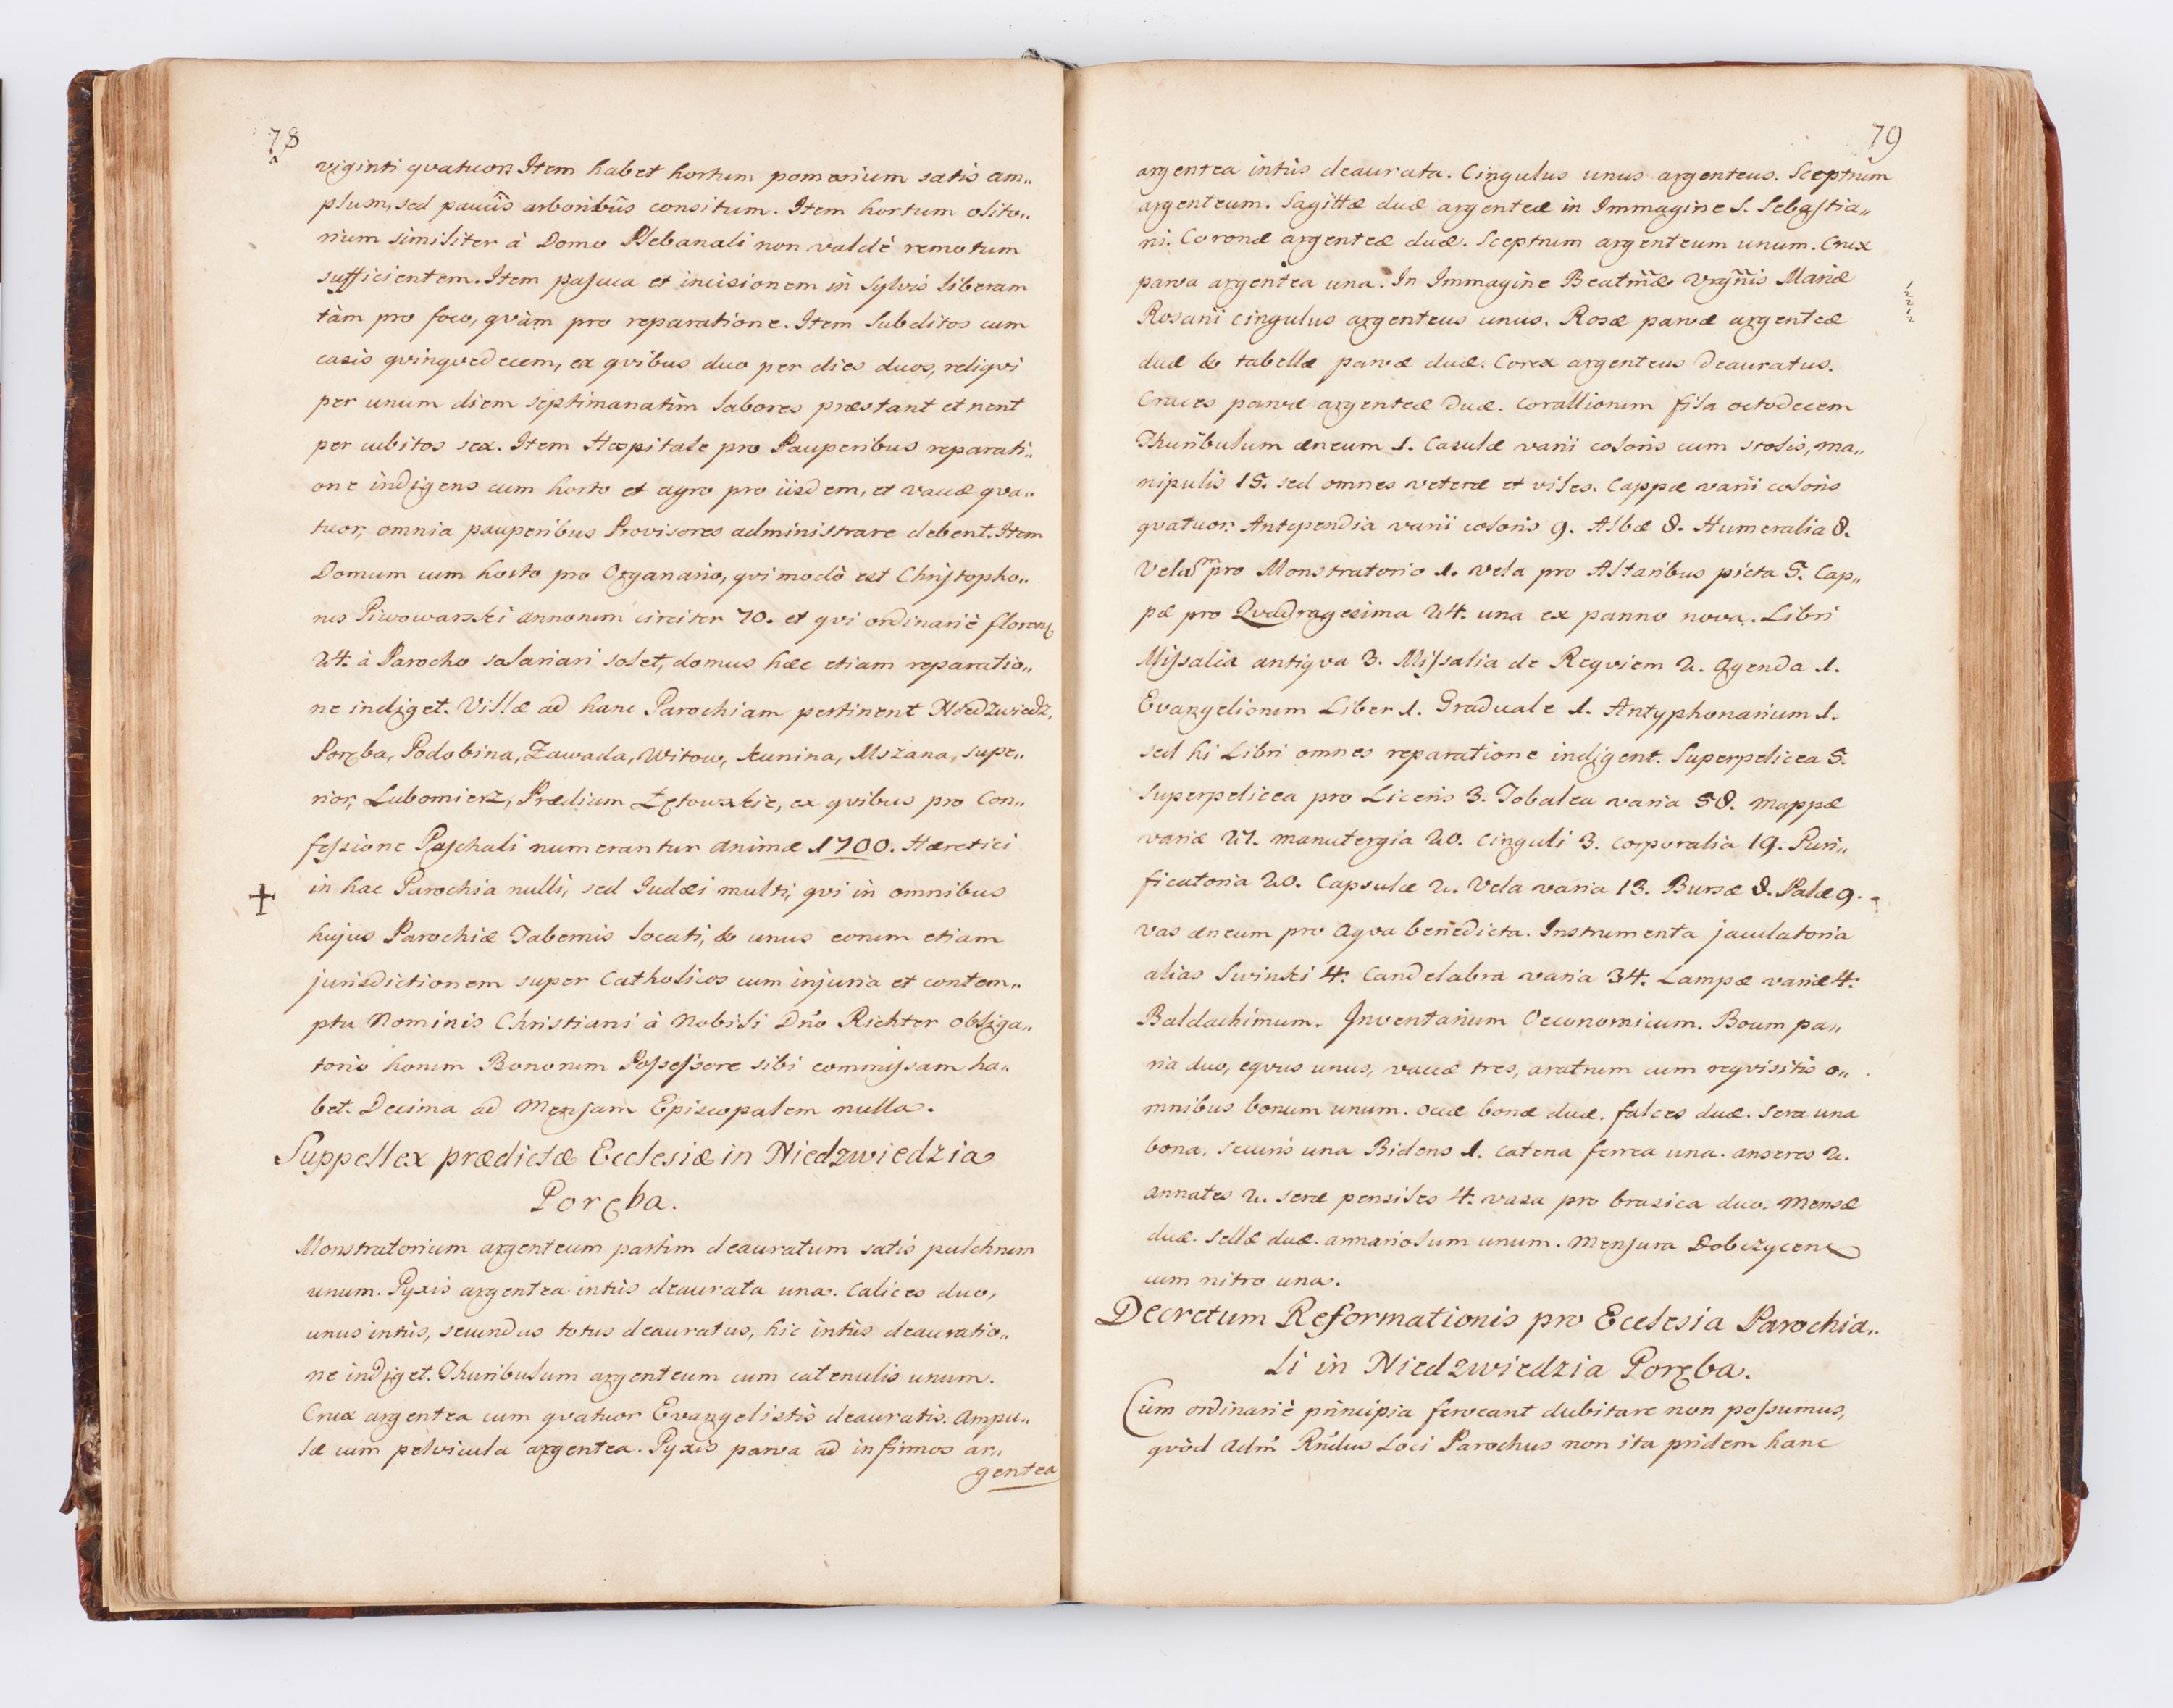 78
viginti qvatuor. Item habet hortum pomarium satis am„
plum, sed paucis arboribus consitum. Item hortum olito„
rium similiter à Domo Plebanali non valdè remotum
sufficientem. Item pascua et incisionem in Sylvis liberam
tàm pro foco, qvàm pro reparatione. Item Subditos cum
casis qvinqvedecem, ex qvibus duo per dies duos, reliqvi
per unum diem septimanatim labores præstant et nent
per cubitos sex. Item Hospitale pro Pauperibus reparati„
one indigens cum horto et agro pro iisdem, et vaccæ qva„
tuor, omnia pauperibus Provisores administrare debent. Item
Domum cum horto pro Organario, qvi modò est Christopho„
rus Piwowarski annorum circiter 70. et qvi ordinariè floren
24. à Parocho salariari solet, domus hæc etiam reparatio„
ne indiget. Villæ ad hanc Parochiam pertinent Niedzwiedz,
Poręba, Podobina, Zawada, Witow, Kunina, Mszana, supe„
rior, Lubomierz, Prædium Łętowskie, ex qvibus pro Con„
fessione Paschali numerantur animæ 1700. Hæretici
+ in hac Parochia nulli, sed Judæi multi, qvi in omnibus
hujus Parochiæ Tabernis locati, & unus eorum etiam
jurisdictionem super Catholicos cum injuria et contem„
ptu Nominis Christiani à Nobili Dn̄o Richter obliga„
torio horum Bonorum Possessore sibi commissam ha„
bet. Decima ad Mensam Episcopalem nulla.
Suppellex prædictæ Ecclesiæ in Niedzwiedzia
Poręba.
Monstratorium argenteum partim deauratum satis pulchrum
unum. Pyxis argentea intùs deaurata una. Calices duo,
unus intùs, secundus totus deauratus, hic intùs deauratio„
ne indiget. Thuribulum argenteum cum catenulis unum.
Crux argentea cum qvatuor Evangelistis deauratis. Ampu„
læ cum pelvicula argentea. Pyxis parva ad infirmos ar„
gentea
79
argentea intùs deaurata. Cingulus unus argenteus. Sceptrum
argenteum. Sagittæ duæ argenteæ in Immagine S. Sebastia„
ni. Coronæ argenteæ duæ. Sceptrum argenteum unum. Crux
parva argentea una. In Immagine Beatm̄æ Vrgn̄is Mariæ
Rosarii cingulus argenteus unus. Rosæ parvæ argenteæ
duæ & tabellæ parvæ duæ. Corex argenteus deauratus.
Cruces parvæ argenteæ duæ. Corallionum fila octodecem
Thuribulum æneum 1. Casulæ varii coloris cum stolis, ma„
nipulis 15. sed omnes veteræ et viles. Cappæ varii coloris
qvatuor. Antependia varii coloris 9. Albæ 8. Humeralia 8.
Velum pro Monstratorio 1. vela pro Altaribus picta 5. Cap„
pæ pro Qvadragesima 24. una ex panno nova. Libri
Missalia antiqva 3. Missalia de Reqviem 2. Agenda 1.
Evangeliorum Liber 1. Graduale 1. Antyphonarium 1.
sed hi Libri omnes reparatione indigent. Superpelicea 5.
Superpelicea pro Liceris 3. Tobalea varia 58. mappæ
variæ 27. manutergia 20. cinguli 3. corporalia 19. Puri„
ficatoria 20. Capsulæ 2. Vela varia 13. Bursæ 8. Palæ 9.
vas æneum pro aqva benedicta. Instrumenta jaculatoria
alias Swinki 4. Candelabra varia 34. Lampæ variæ 4.
Baldachimum. Inventarium Oeconomicum. Boum pa„
ria duo, eqvus unus, vaccæ tres, aratrum cum reqvisitis o„
mnibus bonum unum. occæ bonæ duæ. falces duæ. sera una
bona, securis una Bidens 1. catena ferrea una. anseres 2.
annates 2. seræ pensiles 4. vasa pro brasica duo. Mensæ
duæ. Sellæ duæ. armariolum unum. Mensura Dobczycen
cum nitro una.
Decretum Reformationis pro Ecclesia Parochia„
li in Niedzwiedzia Poręba.
Cùm ordinariè principia ferveant dubitare non possumus,
qvòd Adm̄ Rn̄dus Loci Parochus non ita pridem hanc